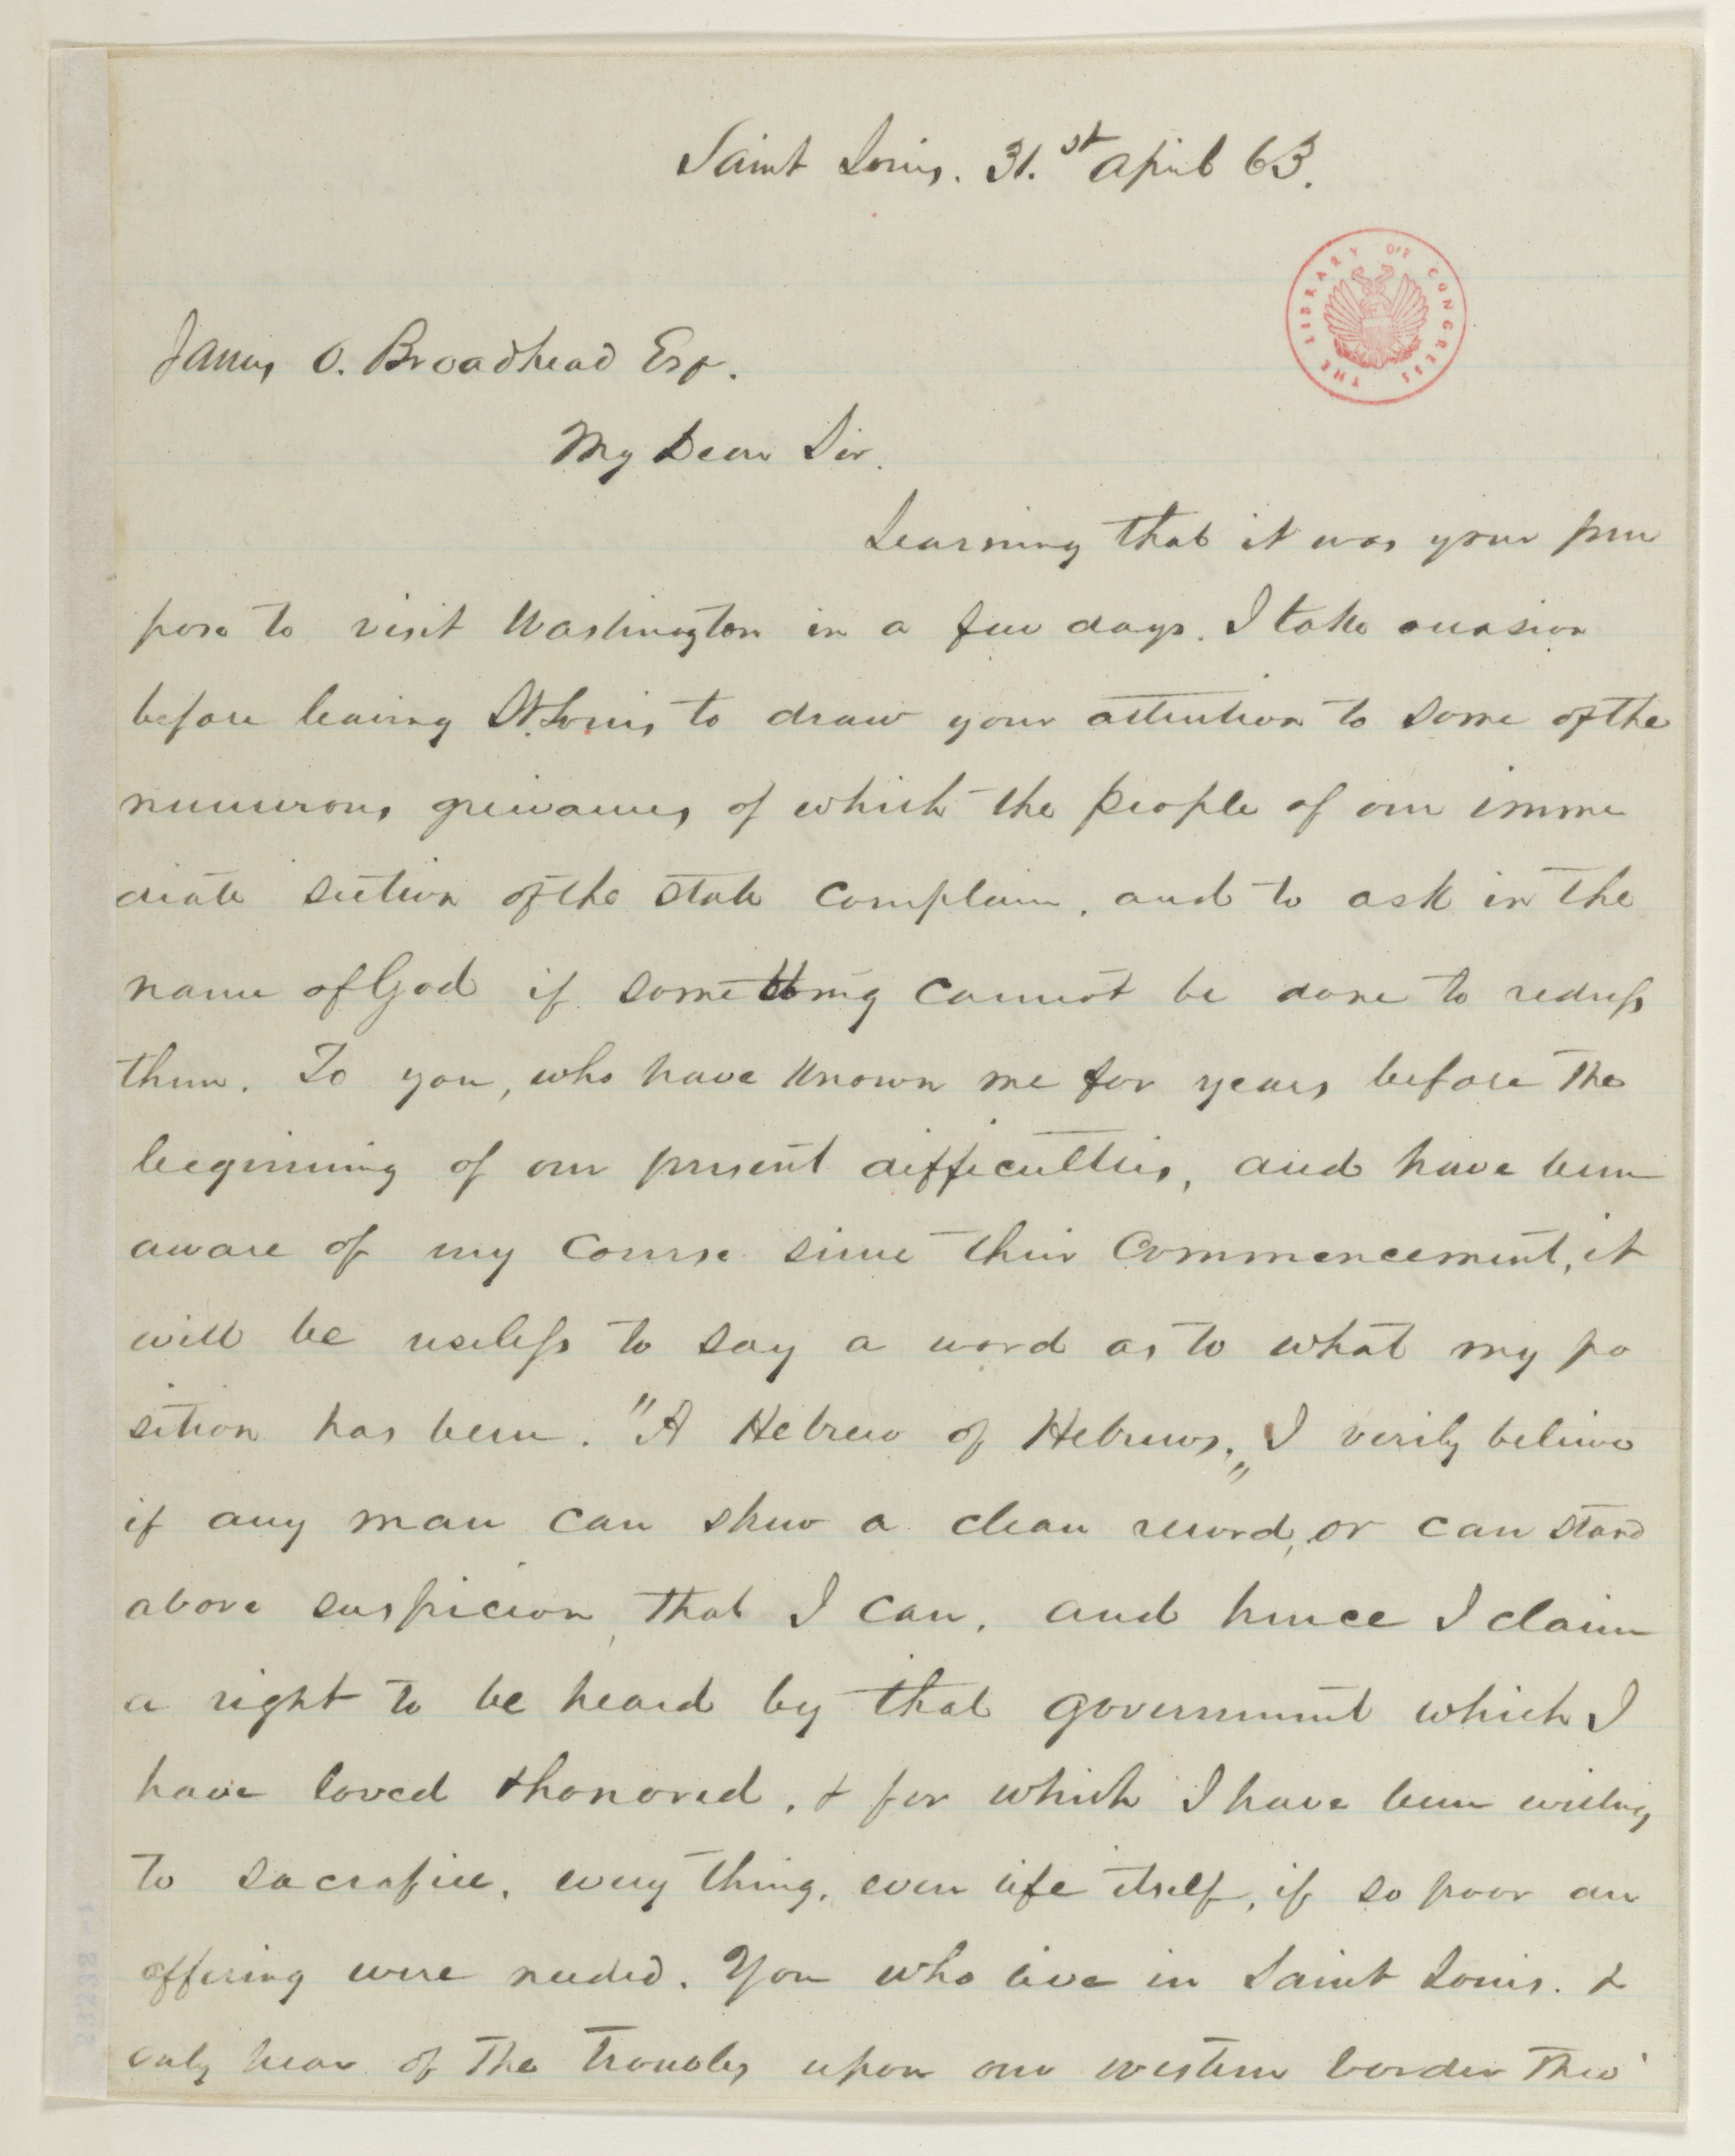 Saint Louis. 31.st April 63.
THE LIBRARY OF CONGRESS
James O. Broadhead Esq.
My Dear Sir.
Learning that it was your pur
pose to visit Washington in a few days. I take occasion
before leaving St. Louis to draw your attention to some of the
numerous greivances of which the people of our imme
diate section of the state complain, and to ask in the
name of God if something cannot be done to redress
them. To you, who have known me for years before the
beginning of our present difficulties, and have been
aware of my course since their commencement, it
will be useless to say a word as to what my po
sition has been. "A Hebrew of Hebrews," I verily believe
if any man can shew a clean record, or can stand
above suspicion, that I can, and hence I claim
a right to be heard by that government which I
have loved & honored, & for which I have been willing
to sacrafice, every thing, even life itself, if so poor an
offering were needed. You who live in Saint Louis. &
only hear of the troubles upon our western border thro'